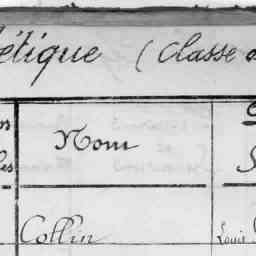 étique (Classe
Nom
les
Collin Louis